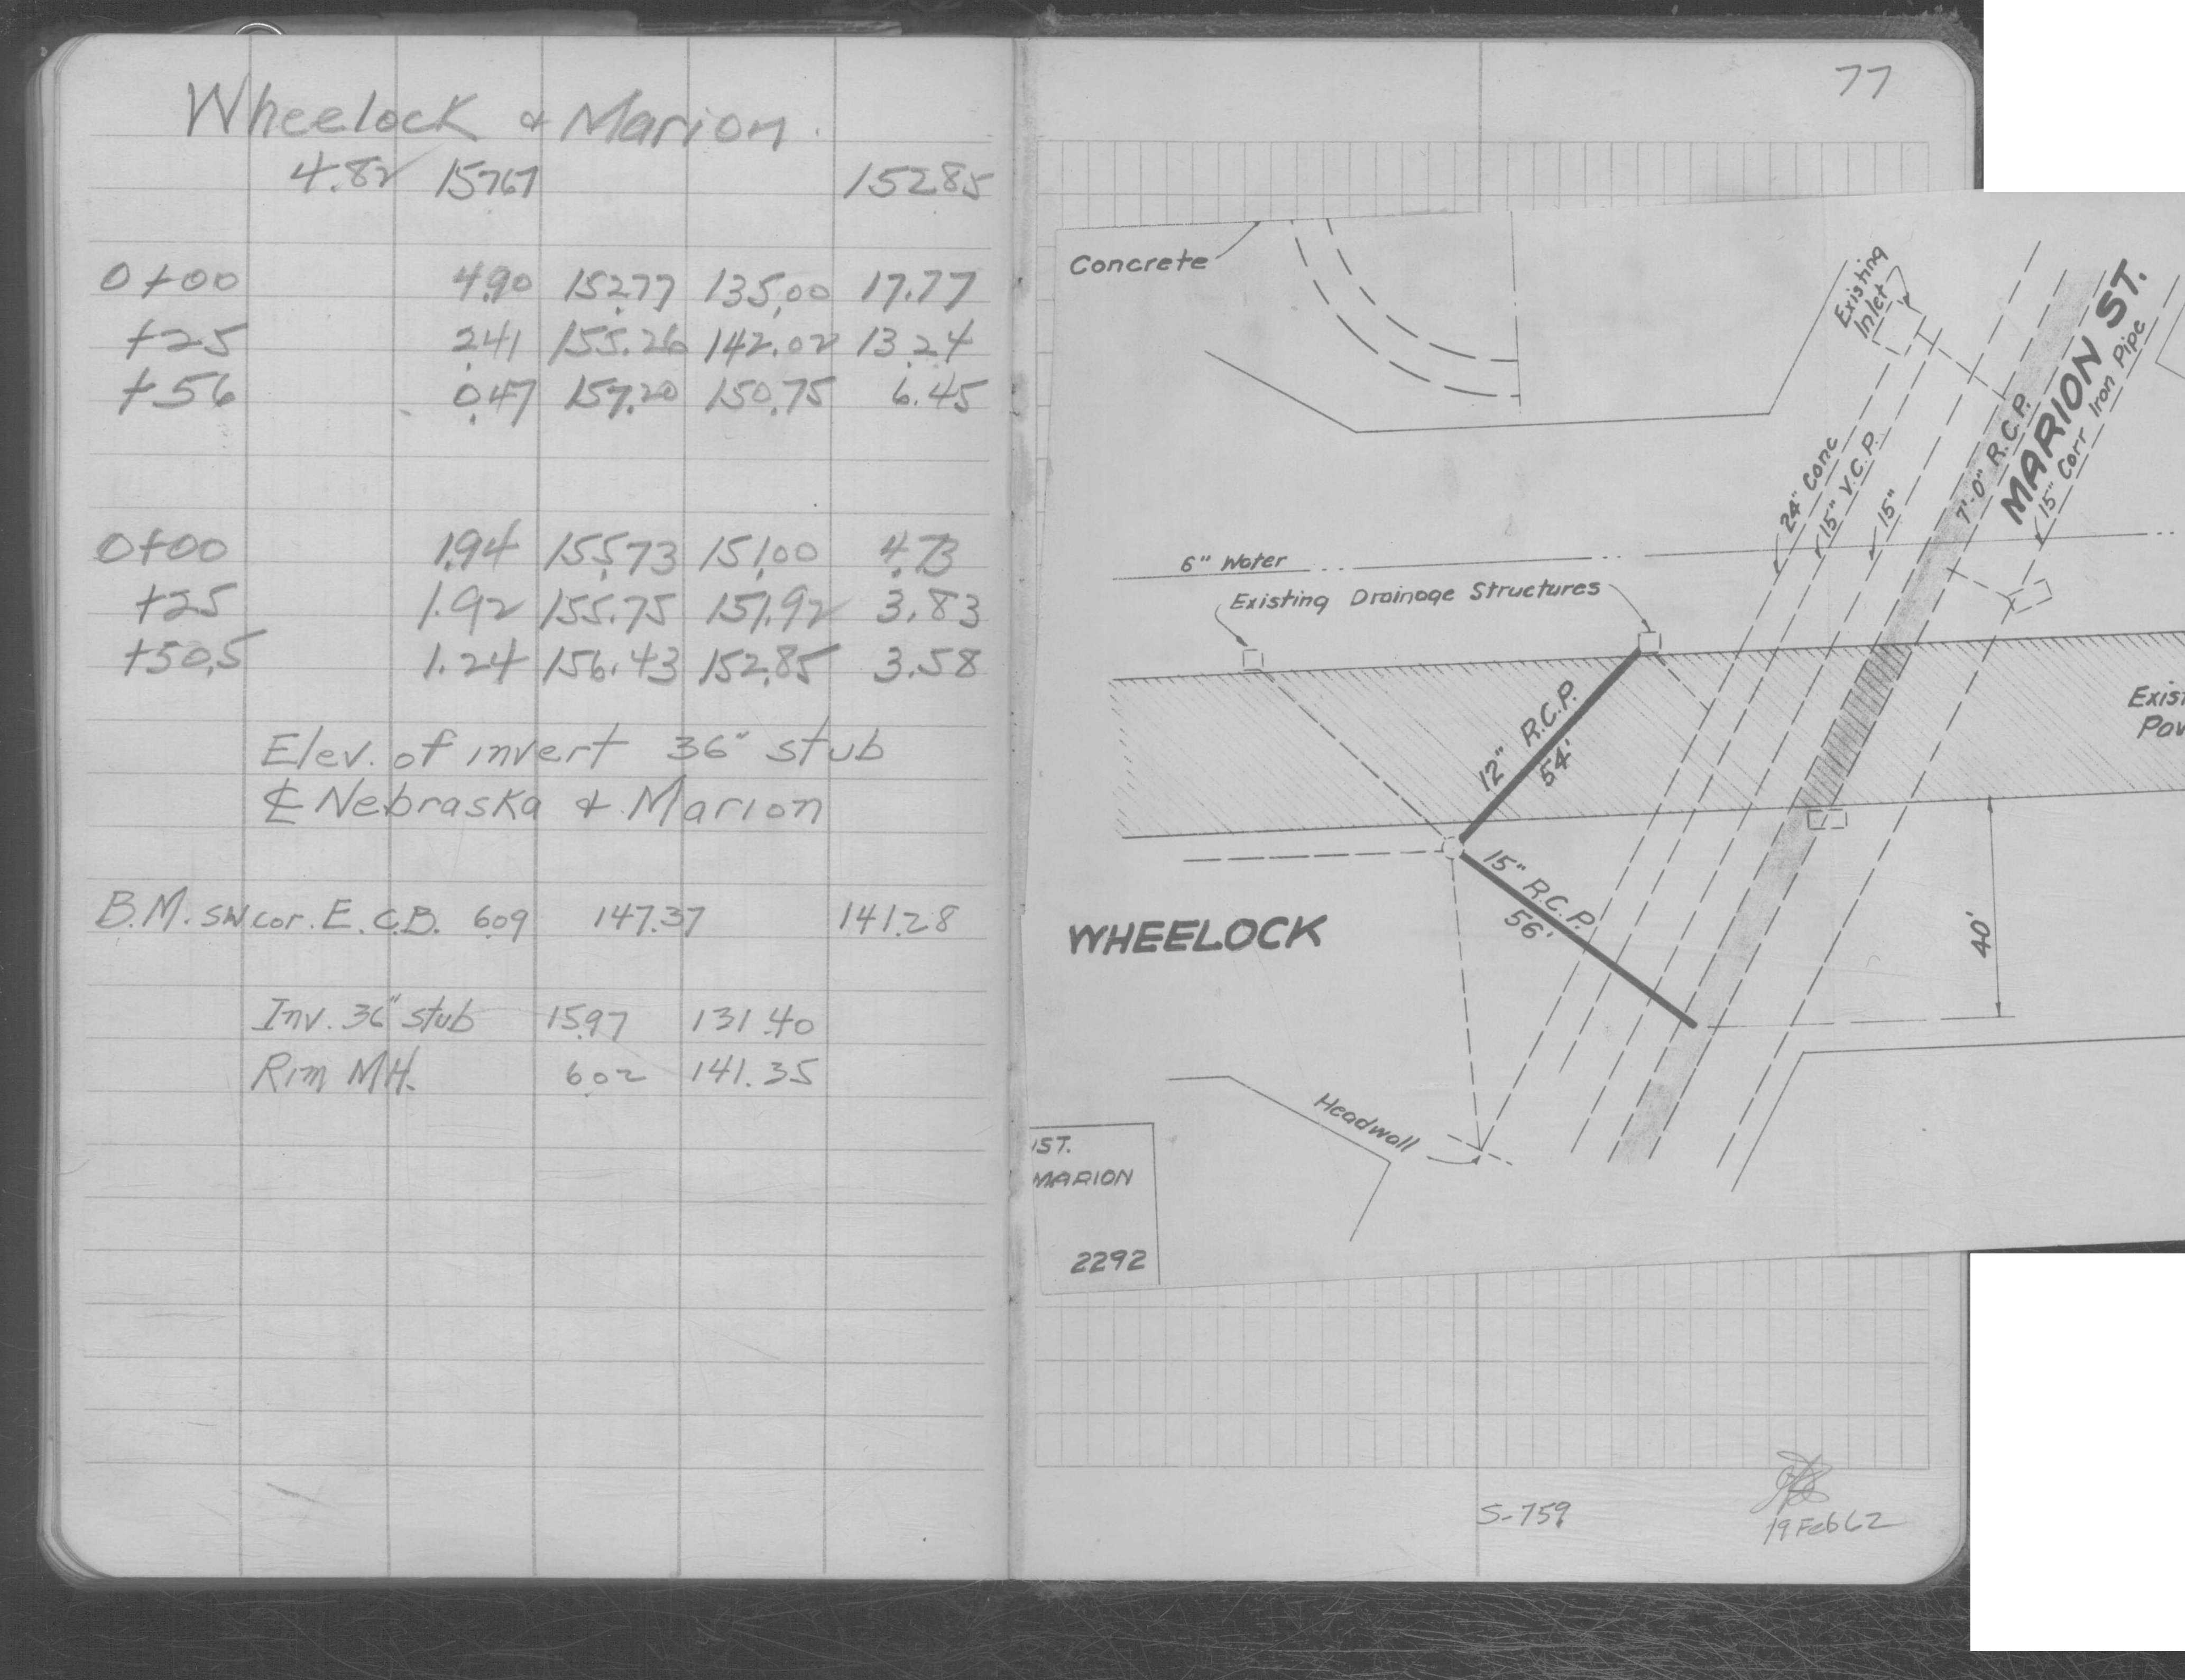 Wheelock & Marion.
4.82 157.67 152.85
0+00 4.90 152.77 135.00 17.77
+25 2.41 155.26 142.02 13.24
+56 0.47 157.20 150.75 6.45
0+00 1.94 155.73 151.00 4.73
+25 1.92 155.75 151.92 3.83
+50.5 1.24 156.43 152.85 3.58
Elev. of invert 36" stub
℄ Nebraska & Marion
B.M. SW cor. E. C.B. 6.09 147.37 141.28
Inv. 36" stub 15.97 131.40
Rim MH. 6.02 141.35
77
Concrete
Existing
Inlet
MARION ST.
24" Conc
15" V.C.P.
15"
7'-0" R.C.P.
15" Corr Iron Pipe
6" Water
Existing Drainage Structures
Exis
Pav
12" R.C.P.
54'
15" R.C.P.
56'
WHEELOCK
40'
Headwall
ST.
MARION
2292
S-759
19 Feb 62